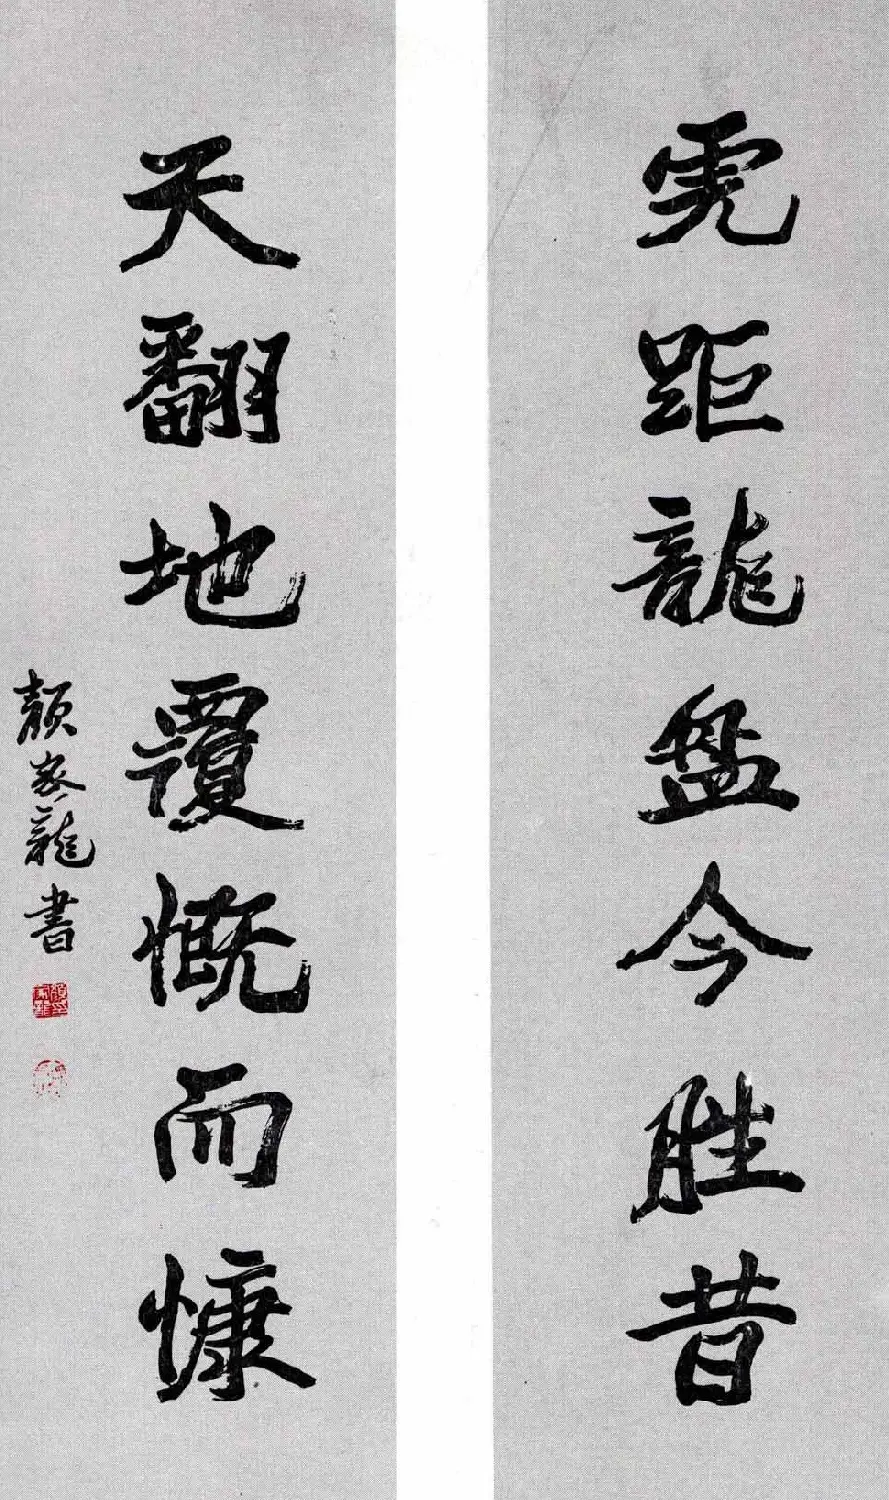 虎距龍盤今胜昔
天翻地覆慨而慷
顏家龍書